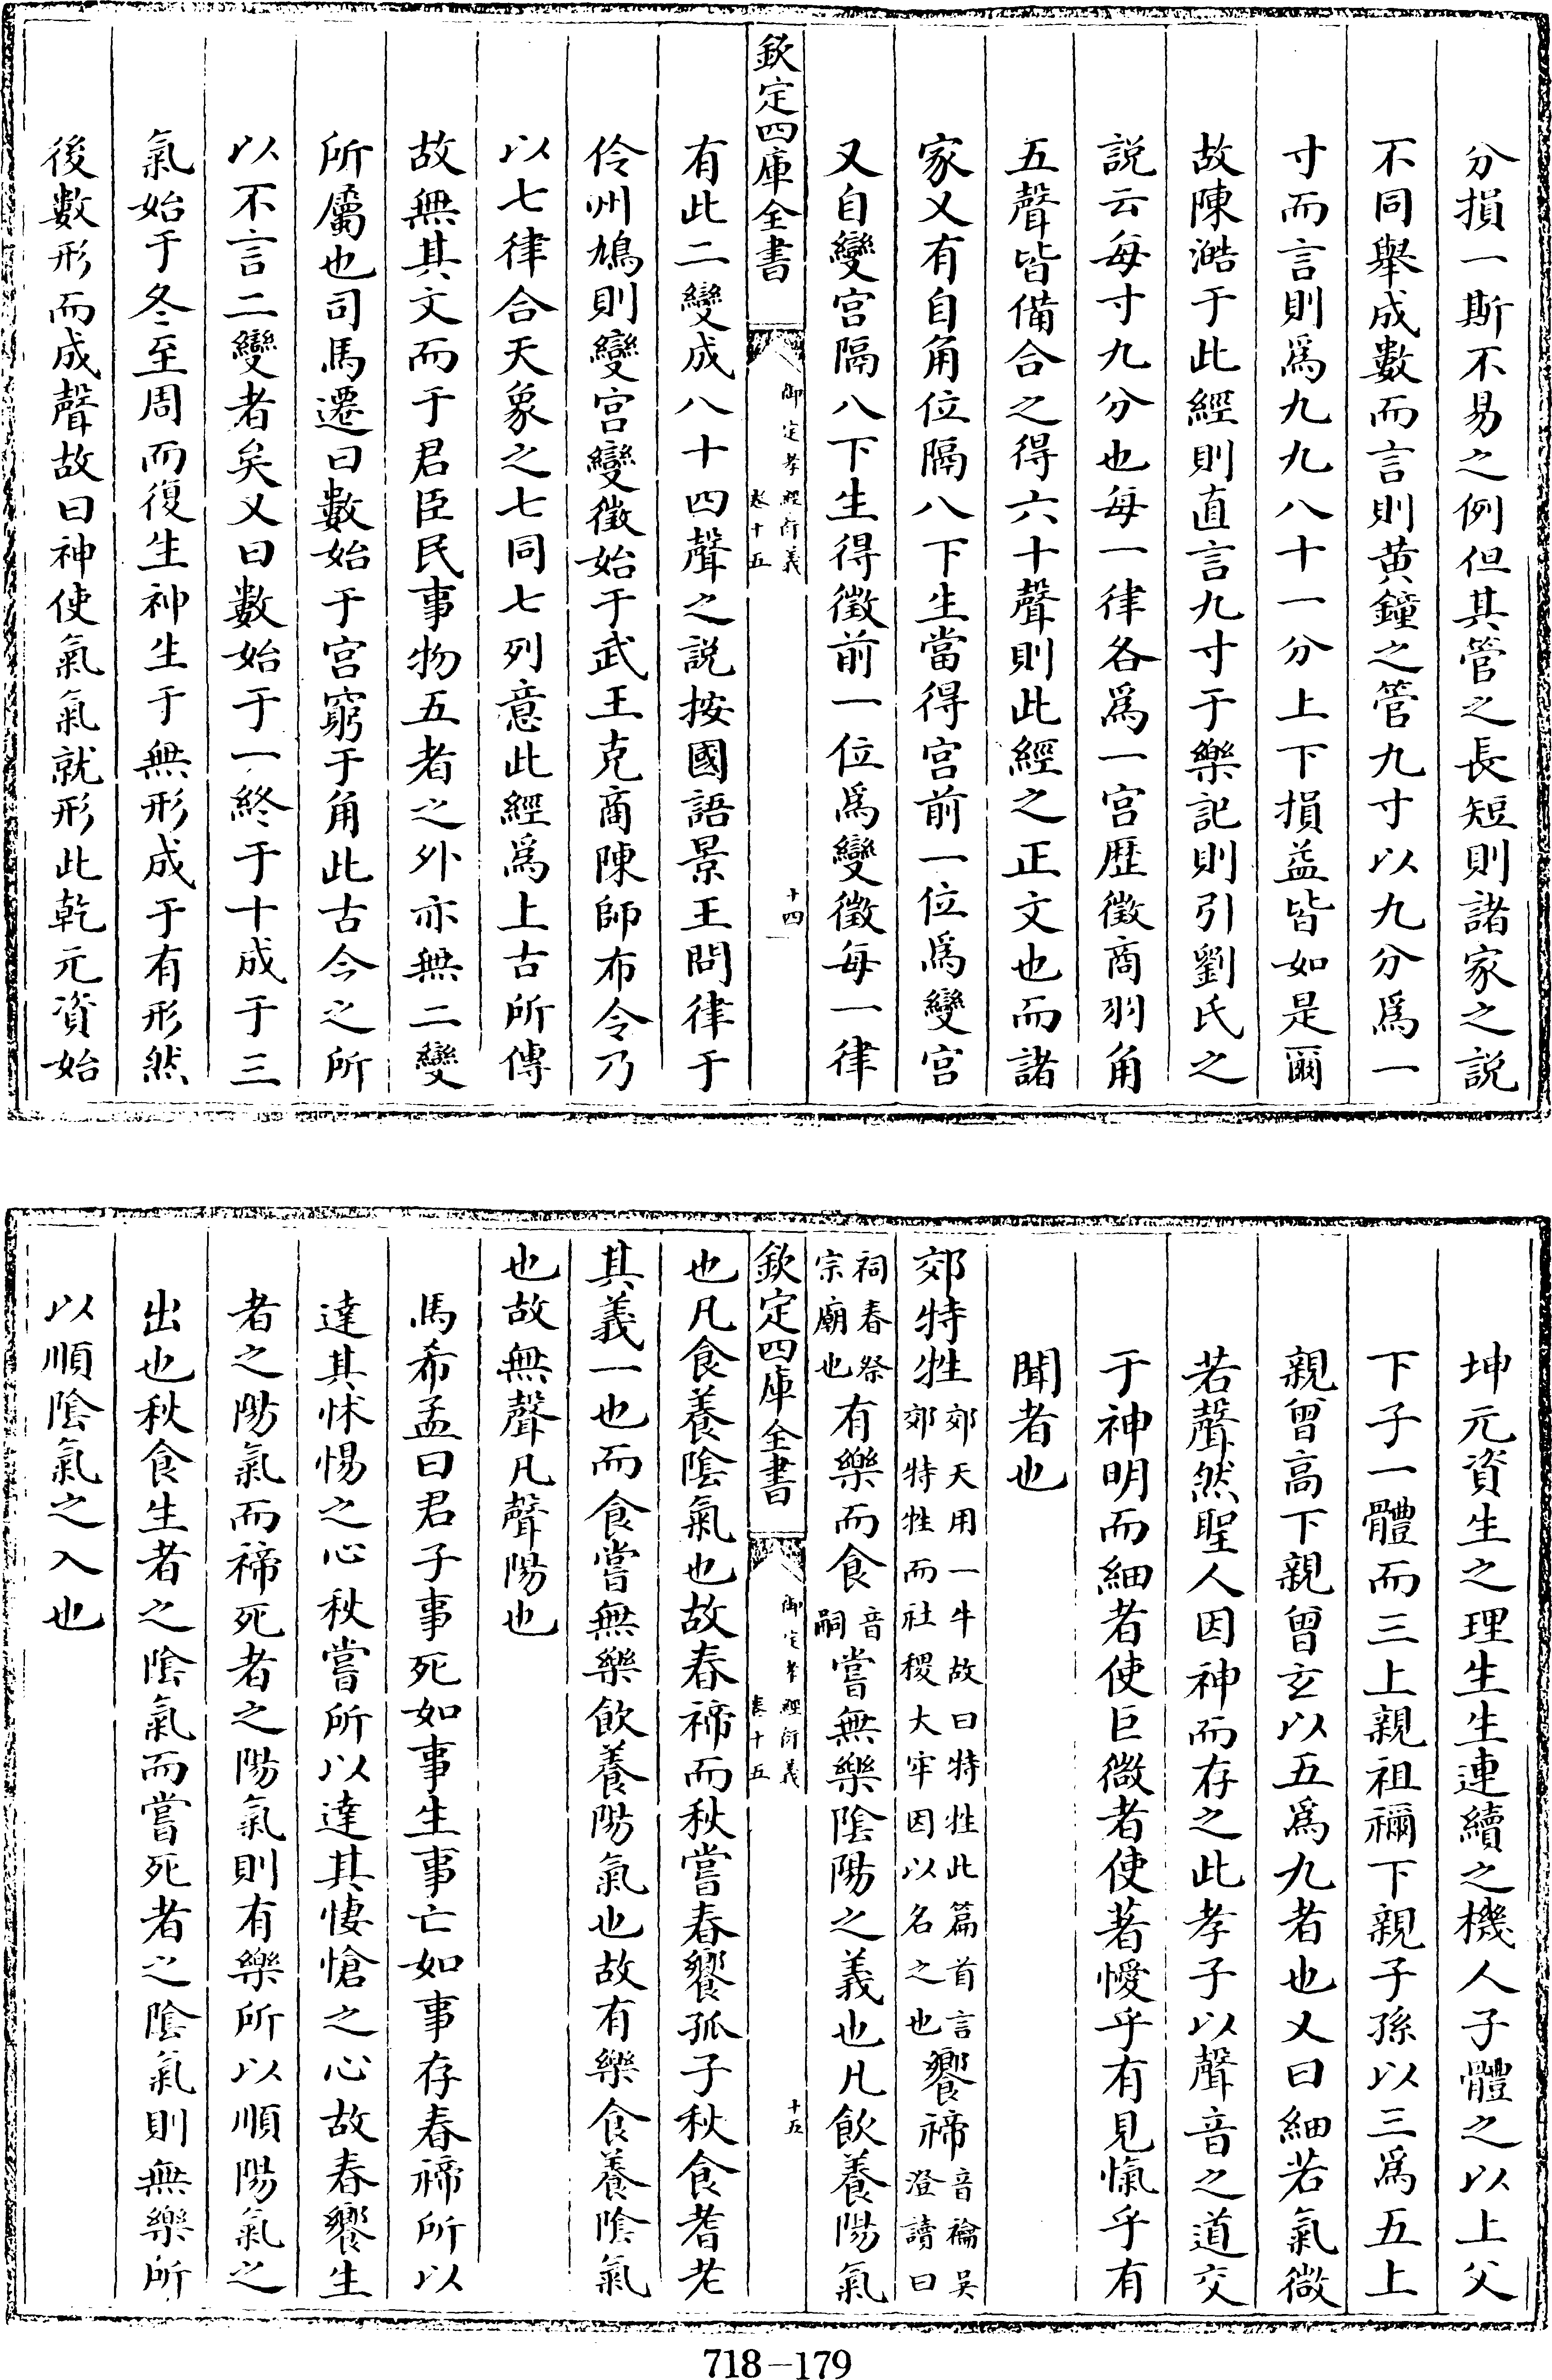 分損一斯不易之例但其管之長短則諸家之説
不同舉成數而言則黄鐘之管九寸以九分爲一
寸而言則爲九九八十一分上下損益皆如是爾
故陳澔于此經則直言九寸于樂記則引劉氏之
説云每寸九分也每一律各爲一宫歴徵商羽角
五聲皆備合之得六十聲則此經之正文也而諸
家又有自角位隔八下生當得宫前一位爲變宫
又自變宫隔八下生得徵前一位爲變徵每一律
欽定四庫全書
御定孝經衍義
卷十五
十四
有此二變成八十四聲之説按國語景王問律于
伶州鳩則變宫變徵始于武王克商陳師布令乃
以七律合天象之七同七列意此經爲上古所傳
故無其文而于君臣民事物五者之外亦無二變
所屬也司馬遷曰數始于宫窮于角此古今之所
以不言二變者矣又曰數始于一終于十成于三
氣始于冬至周而復生神生于無形成于有形然
後數形而成聲故曰神使氣氣就形此乾元資始
坤元資生之理生生連續之機人子體之以上父
下子一體而三上親祖禰下親子孫以三爲五上
親曾高下親曾玄以五爲九者也又曰細若氣微
若聲然聖人因神而存之此孝子以聲音之道交
于神明而細者使巨微者使著懓乎有見愾乎有
聞者也
郊特牲郊天用一牛故曰特牲此篇首言郊特牲而社稷大牢因以名之也饗禘音禴吴澄讀曰
祠春祭宗廟也有樂而食音嗣嘗無樂陰陽之義也凡飲養陽氣
欽定四庫全書
御定孝經衍義
卷十五
十五
也凡食養陰氣也故春禘而秋嘗春饗孤子秋食耆老
其義一也而食嘗無樂飲養陽氣也故有樂食養陰氣
也故無聲凡聲陽也
馬希孟曰君子事死如事生事亡如事存春禘所以
達其怵惕之心秋嘗所以達其悽愴之心故春饗生
者之陽氣而禘死者之陽氣則有樂所以順陽氣之
出也秋食生者之陰氣而嘗死者之陰氣則無樂所
以順陰氣之入也
718-179